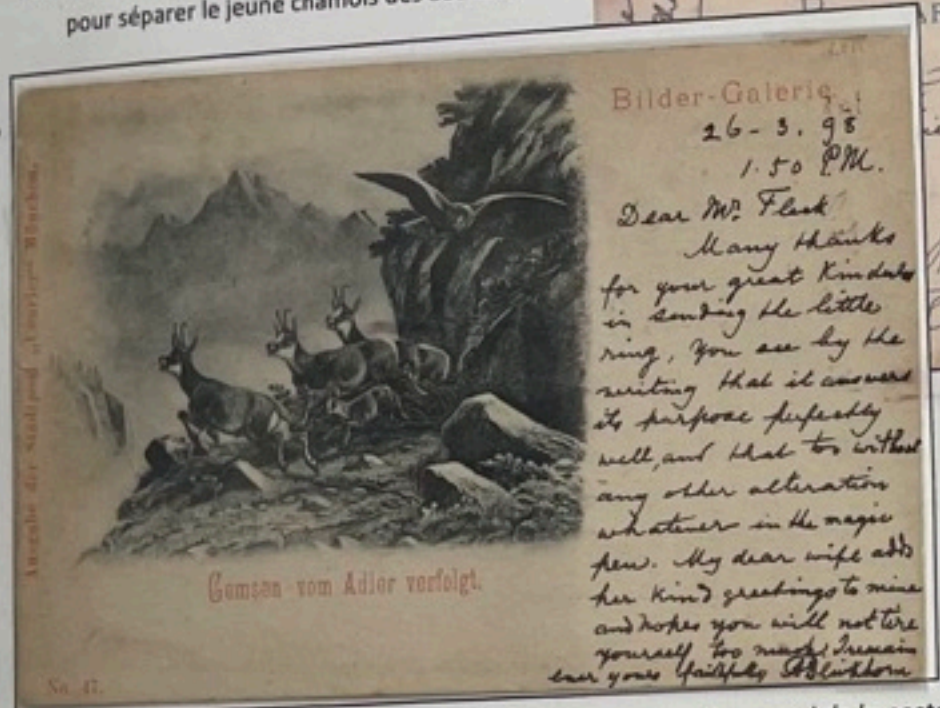 pour séparer le jeune chamois des
Bilder-Galerie.
26-3.98
1.50 P.M.
Dear Mr. Fleck
Many thanks
for your great Kindness
in sending the little
ring, you see by the
writing that it answers
its purpose perfectly
well, and that too without
any other alteration
whatever in the magic
pen. My dear wife adds
her kind greetings to mine
and hopes you will not tire
yourself too much. I remain
ever yours faithfully
Ausgabe der Stadtpost „Courier" München.
Gemsen vom Adler verfolgt.
No. 47.